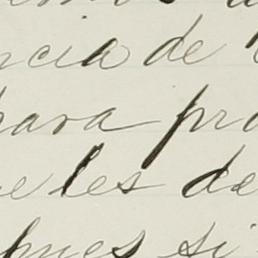 ncia de
para pro
e les de
pues si